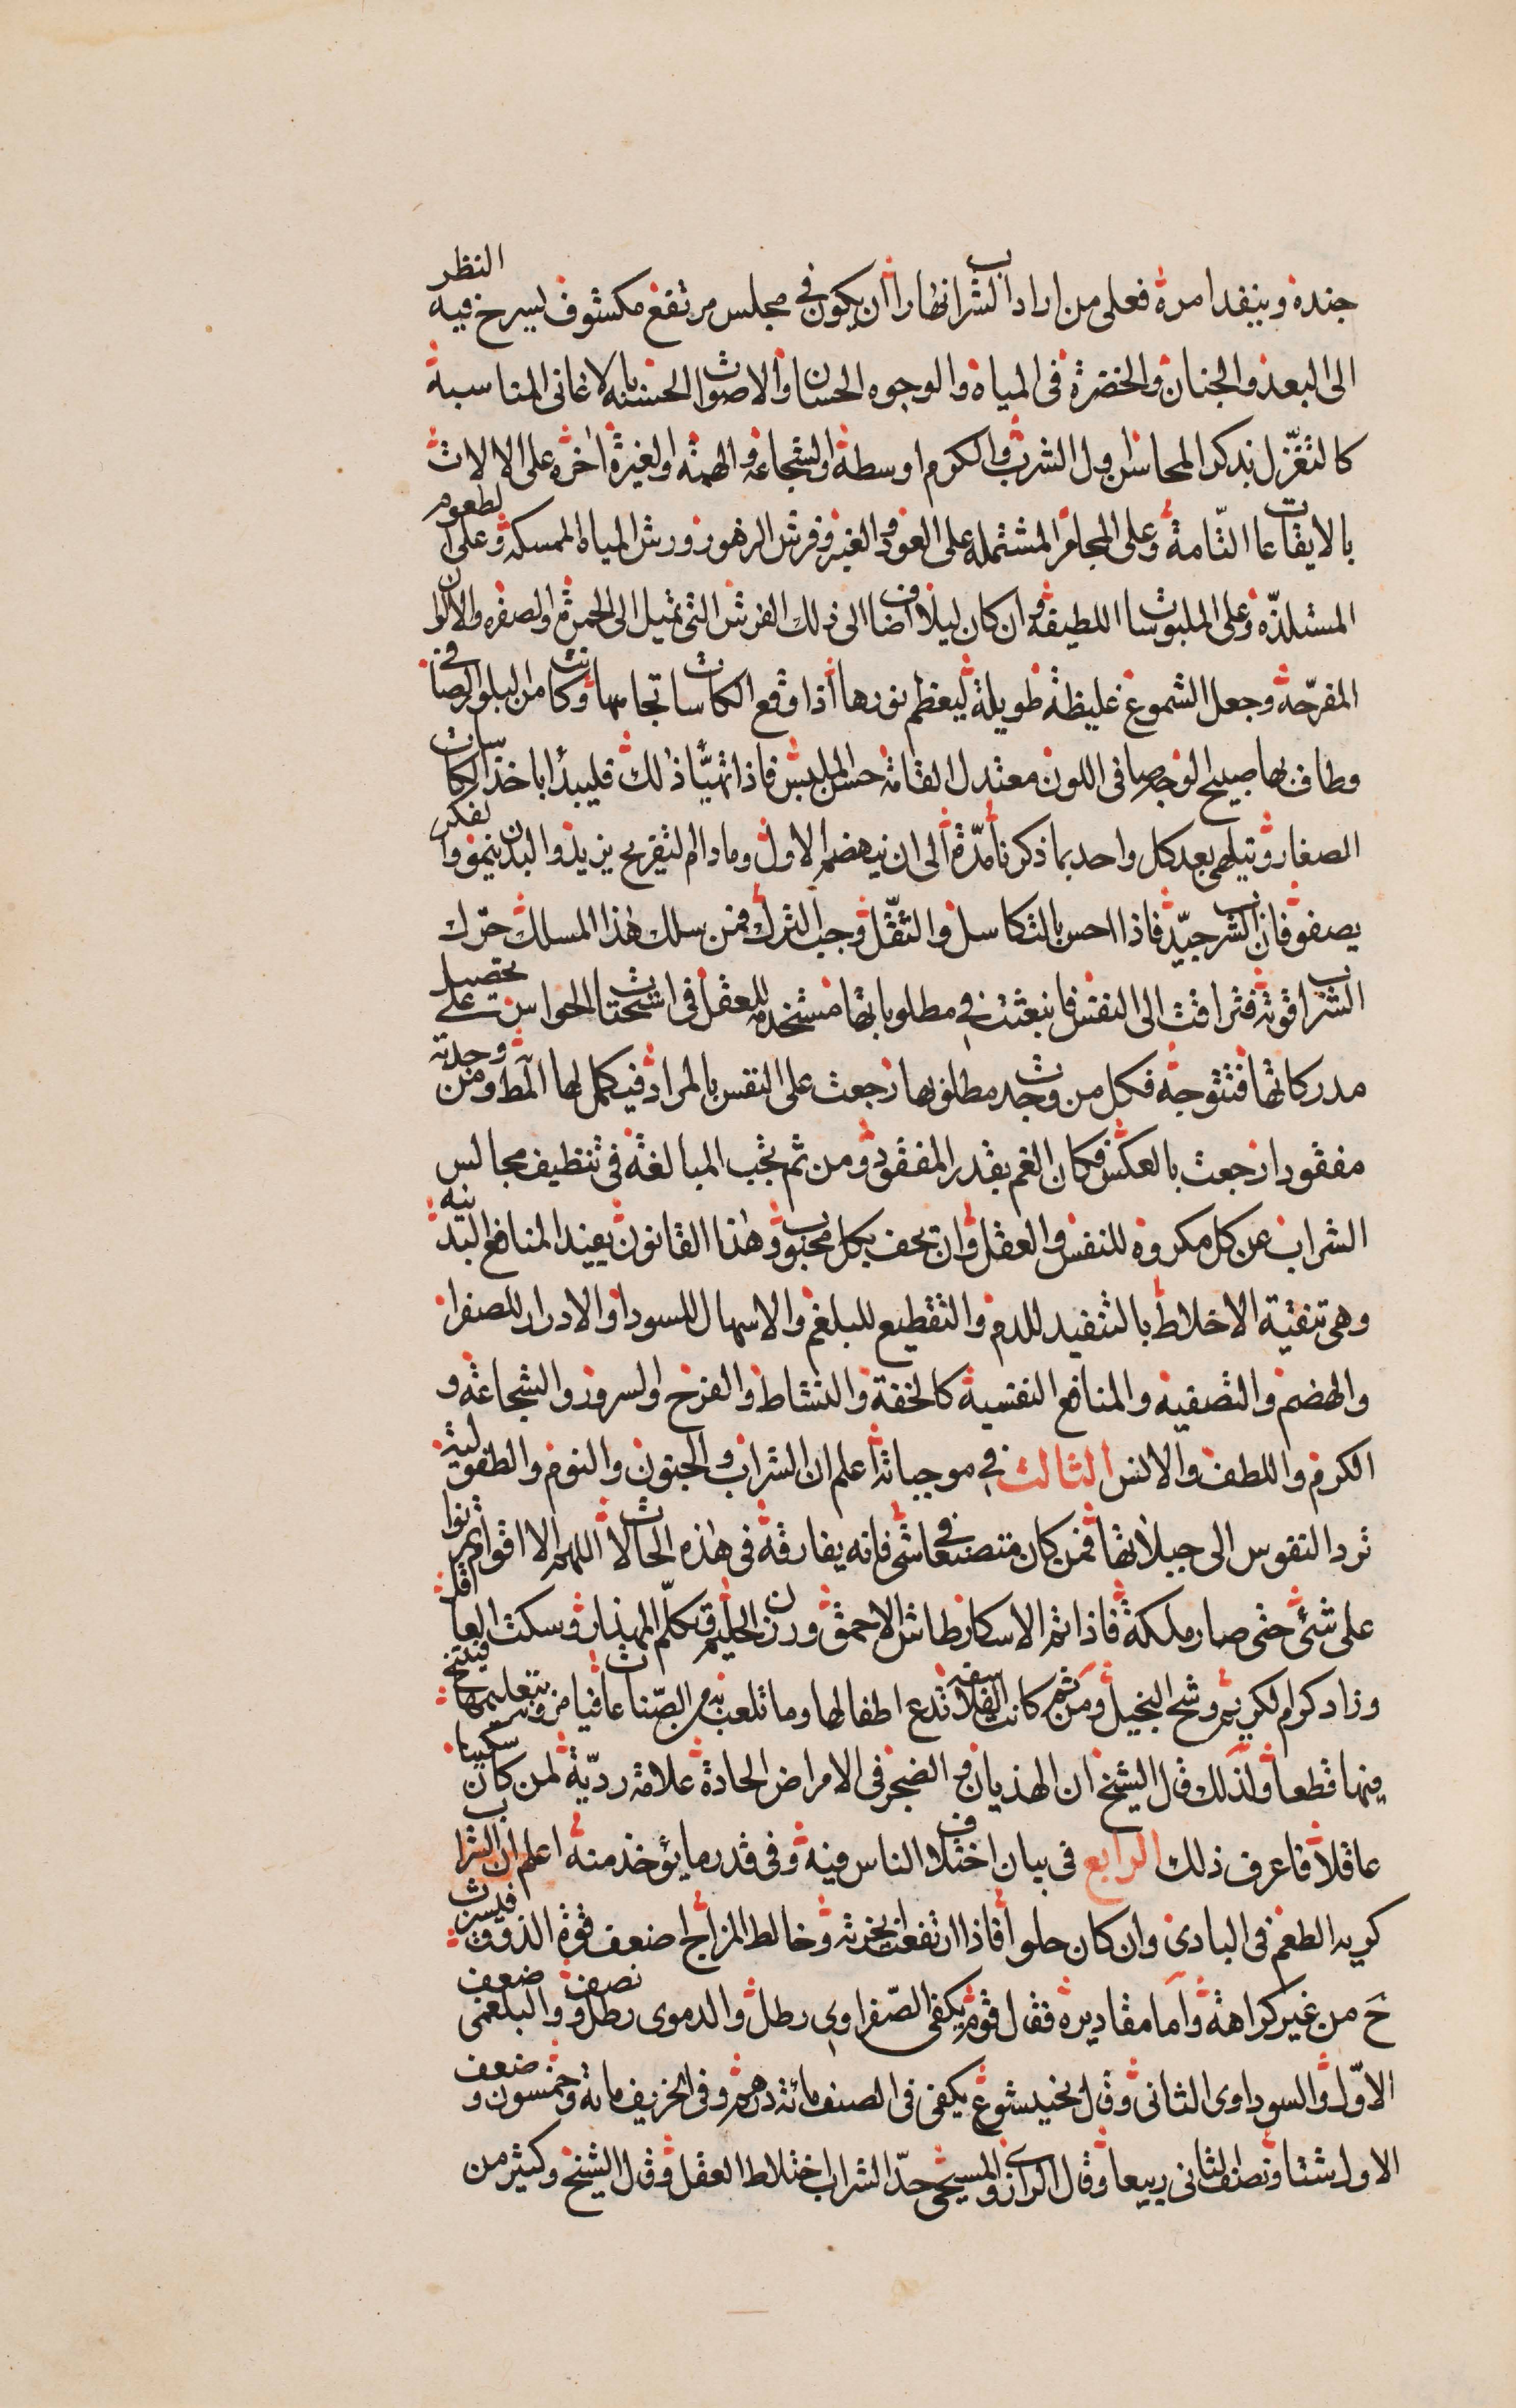 جنده وبنفد امره فعلى من اراد الشراب نهارا ان يكون فى مجلس مرتفع مكشوف ليسرح فيه النظر
الى البعد والجنان والخضرة فى المياه والوجوه الحسان والاصوات الحسنة بالاغانى المناسبة
كالتغزل بذكر المحاسن اول الشرب والكرم اوسطه والشجاعة والهمه والغيرة اخره على الالات
بالايقاعات التّامة وعلى المجامر المشتمله على العود والعنبر وفرش الزهور ورش المياه الممسكه وعلى الطعوم
المستلذّه وعلى الملبوسات اللطيفه وان كان ليلا اضاف الى ذلك الفرش التى تميل الى الحمرة والصفره والالوان
المفرّحة وجعل الشموع غليظة طويلة ليعظم نورها اذا وقع الكاسات تجامها وكانت من البلور الصافى
وطاف بها صبيح الوجه صافى اللون معتدل القامة حسن الملبس فاذا تهيّأ ذلك فليبدأ باخذ الكاسات
الصغار ويتلهى بعد كل واحد بما ذكرنا مدّة الى ان ينهضم الاول وما دام التفريح يزيد والبدن ينمو والفكر
يصفو فان الشرب جيّد فاذا احس بالتكاسل والتثقّل وجب الترك فمن سلك هذا المسلك حرّك
الشراب قوته فتراقت الى النفس فانبعثت فى مطلوباتها مستخدمة للعقل فى استحثات الحواس على تحصيل
مدركاتها فتتوجه فكل من وجدت مطلوبها رجعت على النفس بالمراد فيكمل لها البسط ومن وجدته
مفقودا رجعت بالعكس فكان الغم بقدر المفقود ومن ثم تجب المبالغة فى تنظيف مجالس
الشراب عن كل مكروه للنفس والعقل وان تحف بكل محبوب وهذا القانون يفيد المنافع البدنيه
وهى تنقية الاخلاط بالتنفيد للدم والتقطيع للبلغم والاسهال للسودا والادرار للصفرا
والهضم والتصفيه والمنافع النفسية كالخفة والنشاط والفرح والسرور والشجاعة و
الكرم واللطف والانس الثالث فى موجباته اعلم ان الشراب والجنون والنوم والطفوليّة
ترد النفوس الى جبلاتها فمن كان متصنعا فى شئ فانه يفارقه فى هذه الحالات اللهم الا اقوام تمرنوا
على شئ حتى صار ملكة فاذا تم الاسكار طاش الاحمق ورزن الحليم وتكلّم المهذار وسكت العاقل
وزاد كرم الكريم وشح البخيل ومن ثم كانت الفلاسفه تدع اطفالها وما تلعب به من الصّناعات فيامرون بتعليمها فينتج
فيها قطعا ولذلك قال الشيخ ان الهذيان والضجر فى الامراض الحادة علامة رديّة لمن كان سكيتا
عاقلاً فاعرف ذلك الرابع فى بيان اختلاف الناس فيه وفى قدر ما يؤخذ منه اعلم ان الشراب
كريه الطعم فى البادى وان كان حلوا فاذا ارتفعت ابخرته وخالط المزاج اضعف قوة الذوق فيسرت
حَ من غير كراهة وأما مقاديره فقال قوم يكفى الصّفراوى رطل والدموى رطل ونصف والبلغمى ضعف
الاوّل والسوداوى الثانى وقال بخيشوع يكفى فى الصيف مائة درهم وفى الخريف مائة وخمسون وضعف
الاول شتا ونصف الثانى ربيعا وقال الرازى والمسيحى حدّ الشراب اختلاط العقل وقال الشيخ وكثير من